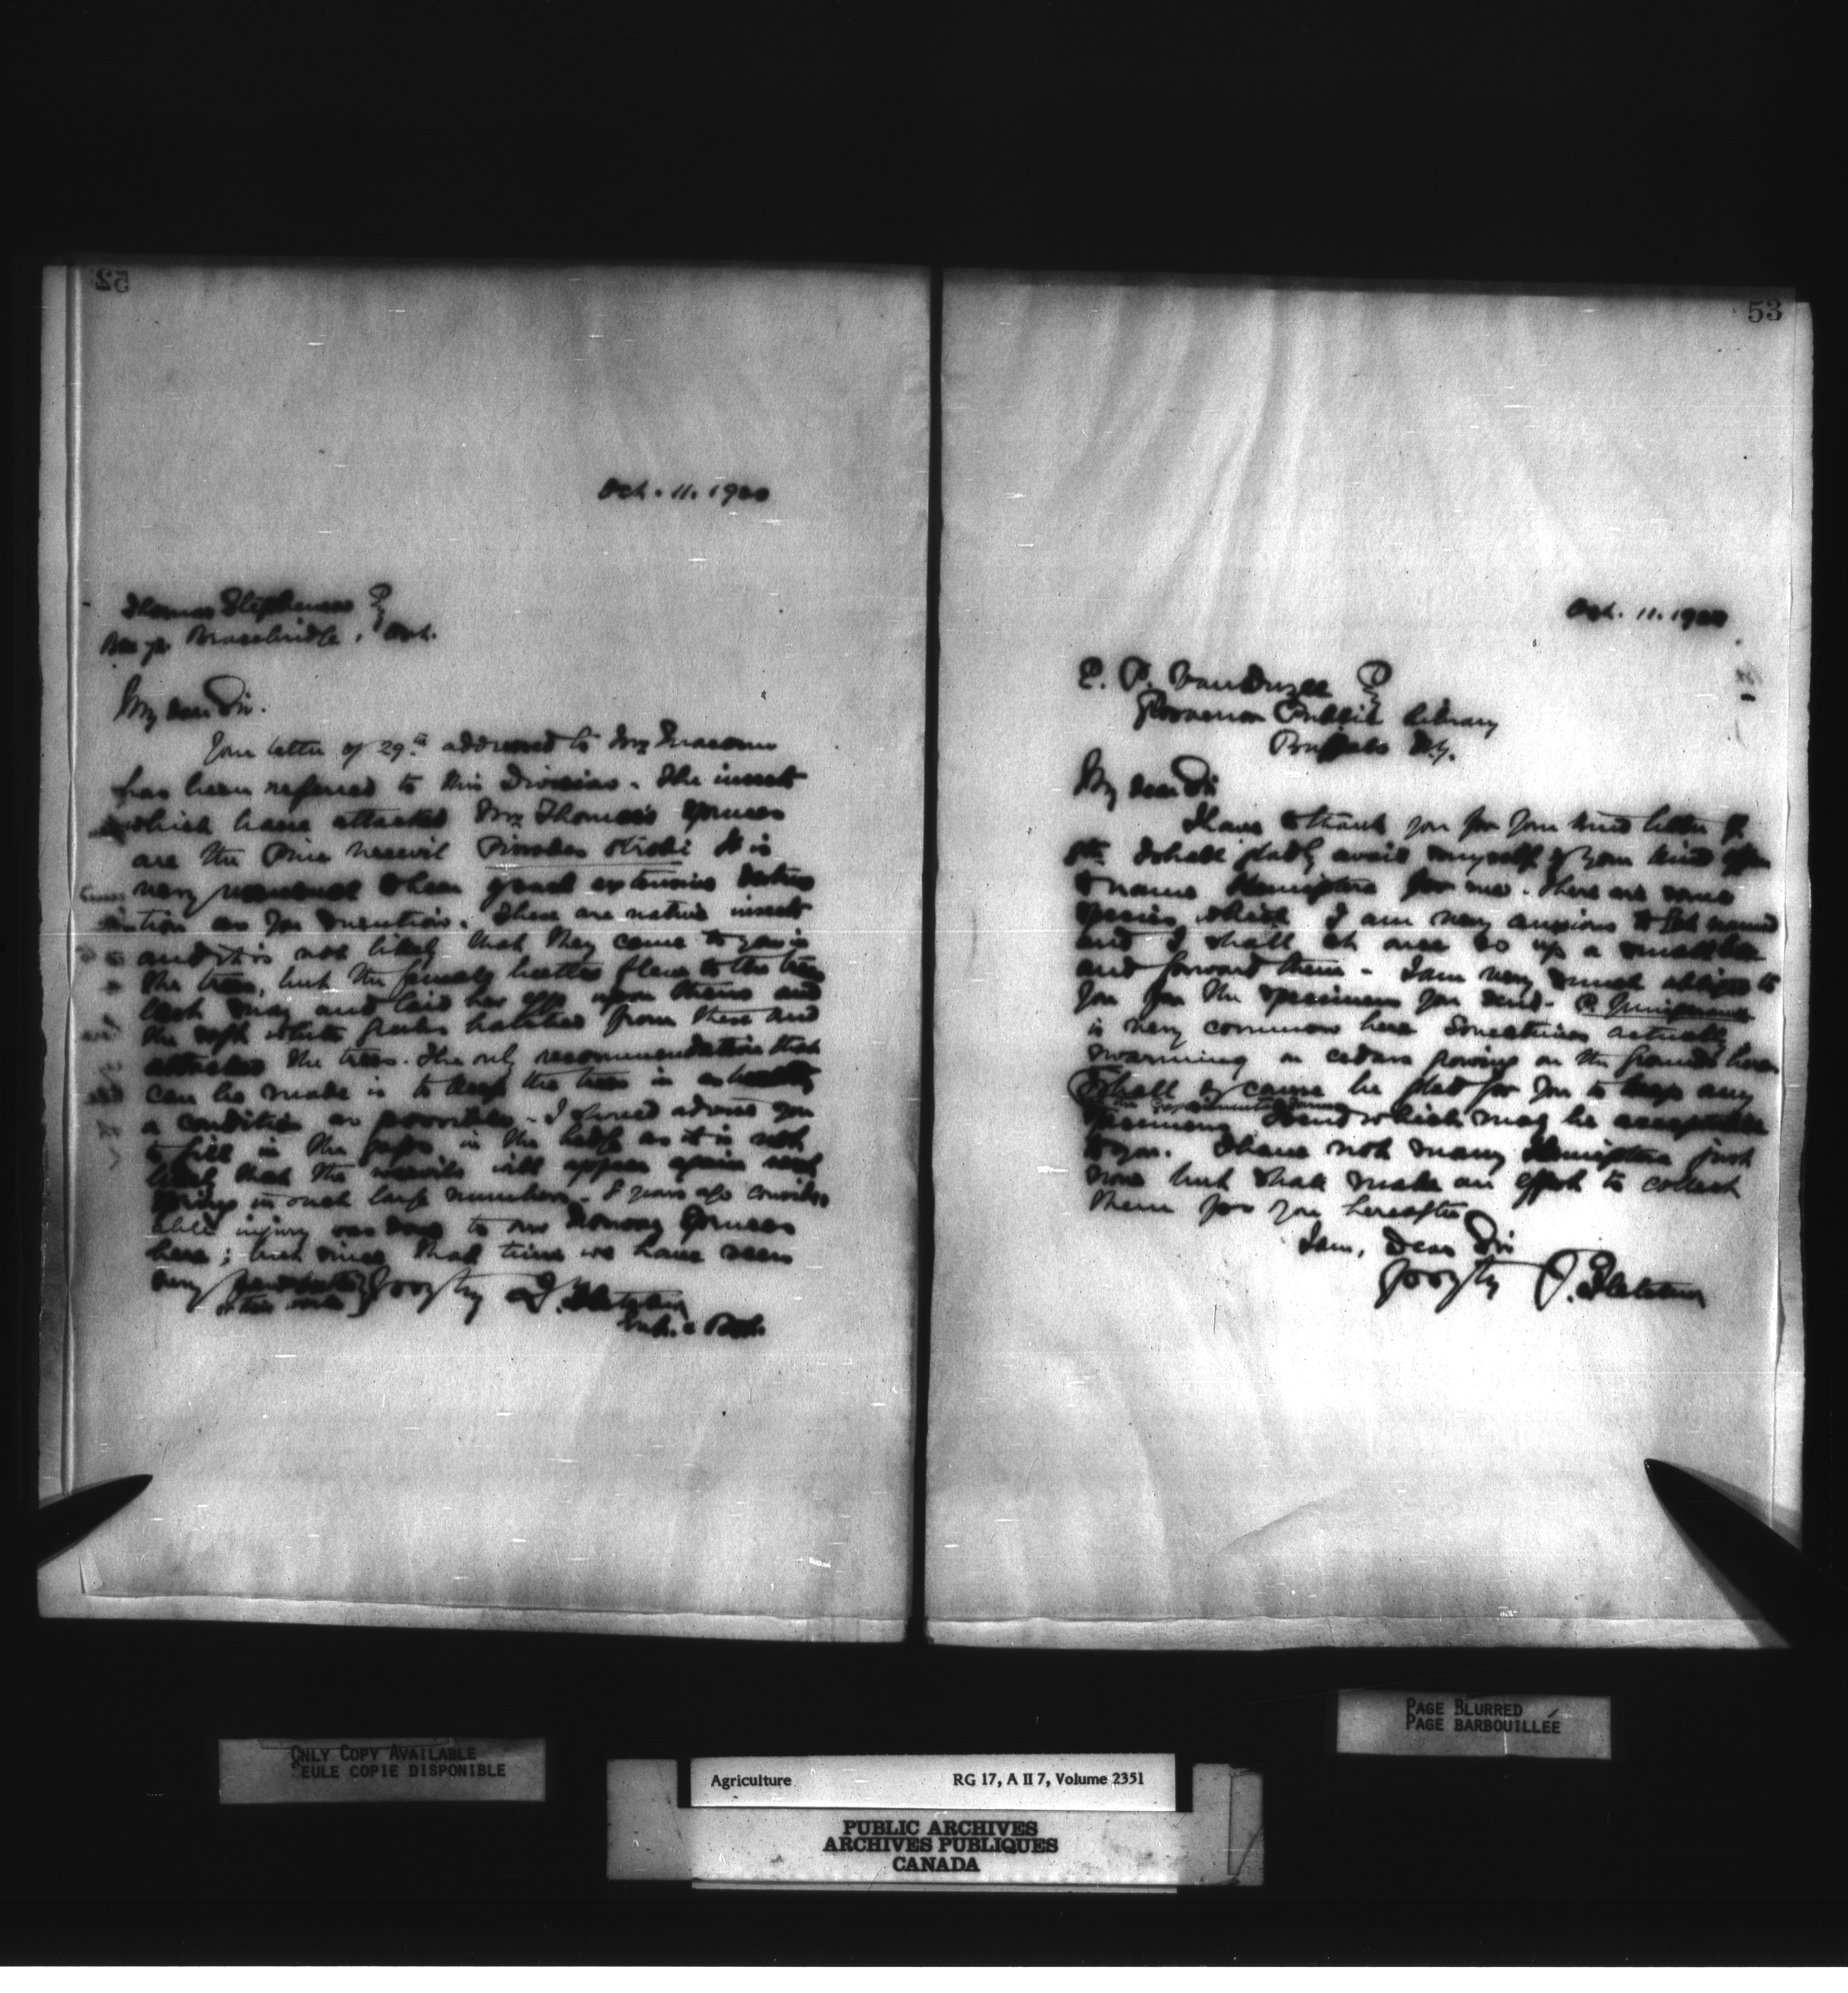 52
Oct. 11. 1900
Thomas Stephenson
Bracebridge, Ont.
My dear Sir.
Your letter of 29th addressed to Mr Macoun
has been referred to this Division. The insects
which have attacked Mr Thomas's spruces
are the Pine weevil Pissodes strobi It is
very unusual to hear of such extensive destruc
tion as you mention. These are native insects
and it is not likely that they came to you in
the trees, but the female beetles flew to the trees
last May and laid her eggs upon them and
the soft white grubs hatched from these and
attacked the trees. The only recommendation that
can be made is to keep the trees in as healthy
a condition as possible. I should advise you
to fill in the gaps in the hedge as it is not
likely that the weevils will appear again next
spring in such large numbers. 8 years ago consider
able injury was done to our Norway Spruces
here; but since that time we have seen
very
yours truly J. Fletcher
Ent. & Bot.
53
Oct. 11. 1900
E. P. Van Duzee
Grosvenor Public Library
Buffalo N.Y.
My dear Sir
I have to thank you for your kind letter of
9th. I shall gladly avail myself of your kind offer
to name Hemiptera for me. There are some
species which I am very anxious to get named
and I shall at once do up a small box
and forward them. I am very much obliged to
you for the specimens you send.
is very common here sometimes actually
swarming on cedars growing on the grounds here.
I shall of course be glad for you to keep any
specimens I send which may be acceptable
to you. I have not many Hemiptera just
now but shall make an effort to collect
them for you hereafter
I am, Dear Sir
yours truly J. Fletcher
ONLY COPY AVAILABLE
SEULE COPIE DISPONIBLE
PAGE BLURRED
PAGE BARBOUILLÉE
Agriculture RG 17, A II 7, Volume 2351
PUBLIC ARCHIVES
ARCHIVES PUBLIQUES
CANADA